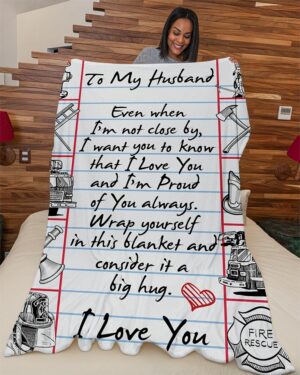 To My Husband
Even when
I'm not close by,
I want you to know
that I Love You
and I'm Proud
of You always.
Wrap yourself
in this blanket and
consider it a
big hug.
I Love You
FIRE
RESCUE